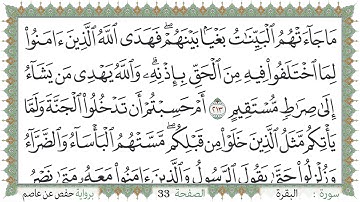 مَا جَآءَتْهُمُ ٱلْبَيِّنَٰتُ بَغْيًۢا بَيْنَهُمْ ۖ فَهَدَى ٱللَّهُ ٱلَّذِينَ ءَامَنُوا۟
لِمَا ٱخْتَلَفُوا۟ فِيهِ مِنَ ٱلْحَقِّ بِإِذْنِهِۦ ۗ وَٱللَّهُ يَهْدِى مَن يَشَآءُ
إِلَىٰ صِرَٰطٍ مُّسْتَقِيمٍ ٢١٣ أَمْ حَسِبْتُمْ أَن تَدْخُلُوا۟ ٱلْجَنَّةَ وَلَمَّا
يَأْتِكُم مَّثَلُ ٱلَّذِينَ خَلَوْا۟ مِن قَبْلِكُم ۖ مَّسَّتْهُمُ ٱلْبَأْسَآءُ وَٱلضَّرَّآءُ
وَزُلْزِلُوا۟ حَتَّىٰ يَقُولَ ٱلرَّسُولُ وَٱلَّذِينَ ءَامَنُوا۟ مَعَهُۥ مَتَىٰ نَصْرُ
سورة : البقرة الصفحة 33 برواية حفص عن عاصم